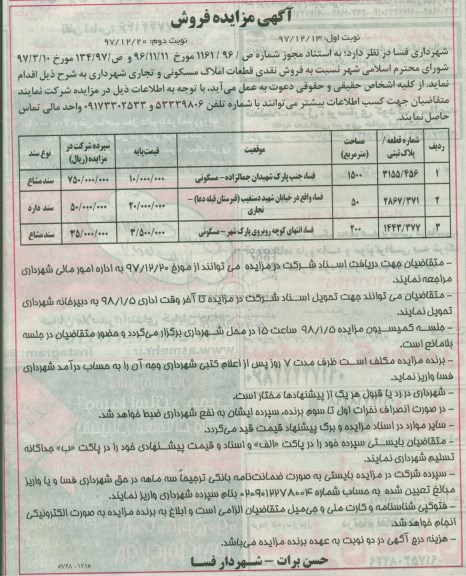 آگهی مزایده فروش
نوبت اول: ۹۷/۱۲/۱۳ نوبت دوم: ۹۷/۱۲/۲۰
شهرداری فسا در نظر دارد: به استناد مجوز شماره ص / ۹۶ / ۱۱۶۱ مورخ ۹۶/۱۱/۱۱ و ص /۱۳۴/۹۷ مورخ ۹۷/۳/۱۰
شورای محترم اسلامی شهر نسبت به فروش نقدی قطعات املاک مسکونی و تجاری شهرداری به شرح ذیل اقدام
نماید. از کلیه اشخاص حقیقی و حقوقی دعوت به عمل می‌آید، با توجه به اطلاعات ذیل در مزایده شرکت نمایند
متقاضیان جهت کسب اطلاعات بیشتر می‌توانند با شماره تلفن ۵۳۳۳۹۸۰۶ و ۰۹۱۷۳۳۰۲۵۳۳ واحد مالی تماس
حاصل نمایند.
ردیف | شماره قطعه / پلاک ثبتی | مساحت (مترمربع) | موقعیت | قیمت پایه | سپرده شرکت در مزایده (ریال) | نوع سند
۱ | ۳۱۵۵/۴۵۶ | ۱۵۰۰ | فسا، جنب پارک شهیدان جمالزاده – مسکونی | ۱۰/۰۰۰/۰۰۰ | ۷۵۰/۰۰۰/۰۰۰ | سند مشاع
۲ | ۲۸۶۷/۳۷۱ | ۵۰ | فسا، واقع در خیابان شهید دستغیب (قبرستان قبله دعا) – تجاری | ۲۰/۰۰۰/۰۰۰ | ۵۰/۰۰۰/۰۰۰ | سند دارد
۳ | ۱۴۴۳/۳۷۷ | ۲۰۰ | فسا، انتهای کوچه روبروی پارک شهر – مسکونی | ۳/۵۰۰/۰۰۰ | ۳۵/۰۰۰/۰۰۰ | سند مشاع
– متقاضیان جهت دریافت اسناد شرکت در مزایده می توانند از مورخ ۹۷/۱۲/۲۰ به اداره امور مالی شهرداری
مراجعه نمایند.
– متقاضیان می توانند جهت تحویل اسناد شرکت در مزایده تا آخر وقت اداری ۹۸/۱/۵ به دبیرخانه شهرداری
تحویل نمایند.
– جلسه کمیسیون مزایده ۹۸/۱/۵ ساعت ۱۵ در محل شهرداری برگزار می‌گردد و حضور متقاضیان در جلسه
بلامانع است.
– برنده مزایده مکلف است ظرف مدت ۷ روز پس از اعلام کتبی شهرداری وجه آن را به حساب درآمد شهرداری
فسا واریز نماید.
– شهرداری در رد یا قبول هر یک از پیشنهادها مختار است.
– در صورت انصراف نفرات اول تا سوم برنده، سپرده ایشان به نفع شهرداری ضبط خواهد شد.
– سایر موارد در اسناد مزایده و برگ پیشنهاد قیمت قید می‌گردد.
– متقاضیان بایستی سپرده خود را در پاکت «الف» و اسناد و قیمت پیشنهادی خود را در پاکت «ب» جداگانه
تسلیم شهرداری نمایند.
– سپرده شرکت در مزایده بایستی به صورت ضمانت‌نامه بانکی ترجیحاً سه ماهه در حق شهرداری فسا و یا واریز
مبالغ تعیین شده به حساب شماره ۰۲۰۹۰۱۲۲۷۸۰۰۴ بنام سپرده شهرداری واریز نمایند.
– فتوکپی شناسنامه و کارت ملی و جی‌میل متقاضیان الزامی است و ابلاغ به برنده مزایده به صورت الکترونیکی
انجام خواهد شد.
– هزینه درج آگهی در دو نوبت به عهده برنده مزایده می‌باشد.
حسن برات – شهردار فسا